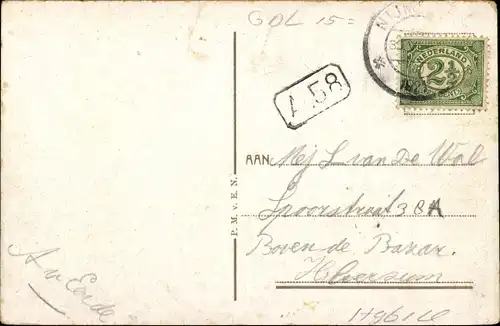 GDL 15=
NIJM
NEDERLAND
2½
CENT
A.58
AAN Mej L van De Wal
Spoorstraat 38A
Boven de Bazar.
Hilversum
P. M. v. E. N.
A v Eerde